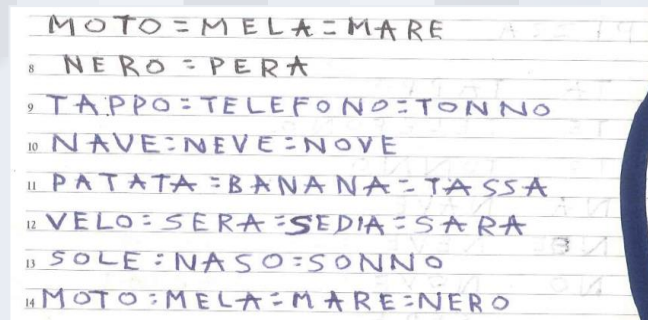 MOTO=MELA=MARE
8 NERO=PERA
9 TAPPO=TELEFONO=TONNO
10 NAVE=NEVE=NOVE
11 PATATA=BANANA=TASSA
12 VELO=SERA=SEDIA=SARA
13 SOLE=NASO=SONNO
14 MOTO=MELA=MARE=NERO